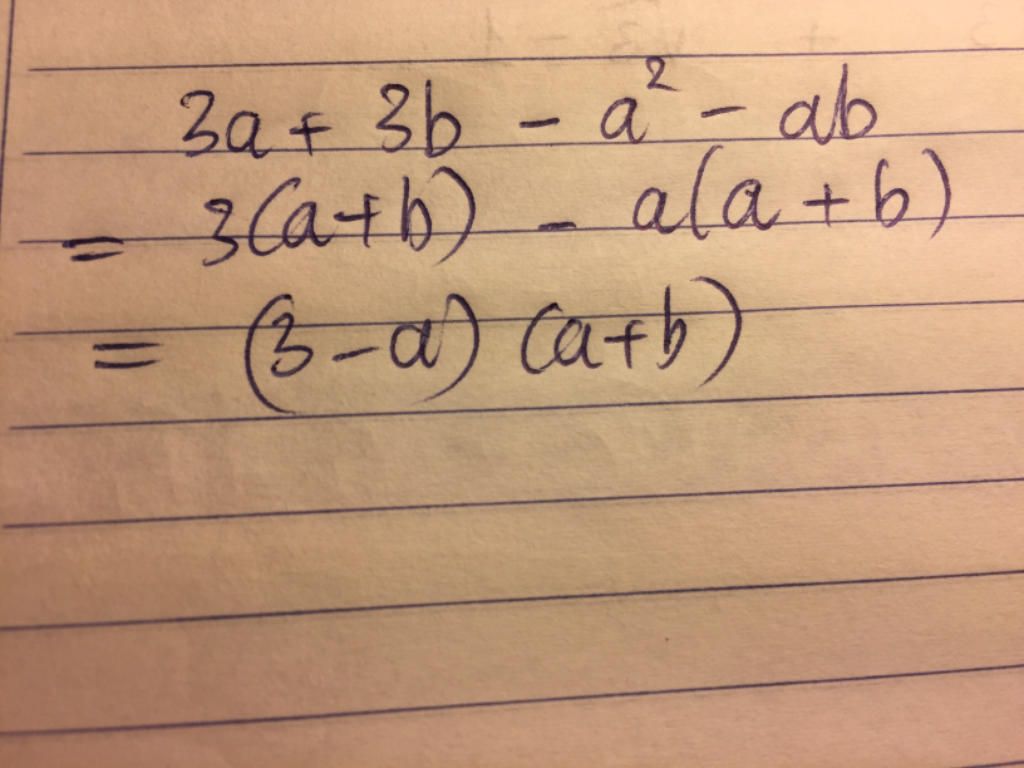 3a + 3b - a² - ab
= 3(a+b) - a(a+b)
= (3-a) (a+b)